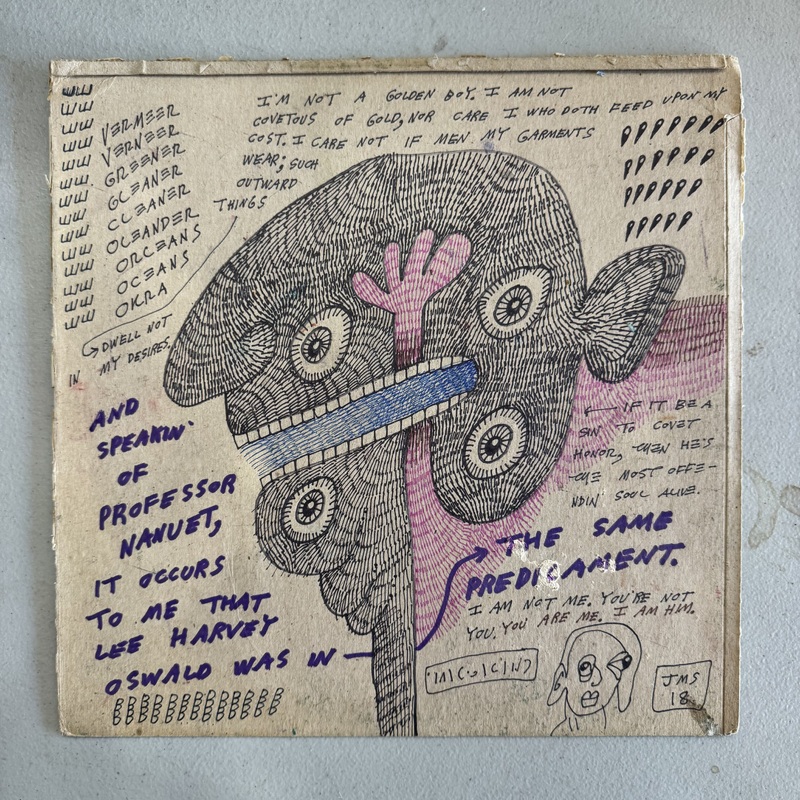 I'M NOT A GOLDEN BOY. I AM NOT
COVETOUS OF GOLD, NOR CARE I WHO DOTH FEED UPON MY
COST. I CARE NOT IF MEN MY GARMENTS
WEAR; SUCH
OUTWARD
THINGS
DWELL NOT
IN MY DESIRES.
VERMEER
VERNEER
GREENER
GLEANER
CLEANER
OLEANDER
ORLEANS
OCEANS
OKRA
IF IT BE A
SIN TO COVET
HONOR, THEN HE'S
THE MOST OFFE-
NDIN' SOUL ALIVE.
AND
SPEAKIN'
OF
PROFESSOR
NANUET,
IT OCCURS
TO ME THAT
LEE HARVEY
OSWALD WAS IN
THE SAME
PREDICAMENT.
I AM NOT ME. YOU'RE NOT
YOU. YOU ARE ME. I AM HIM.
JMS
18.